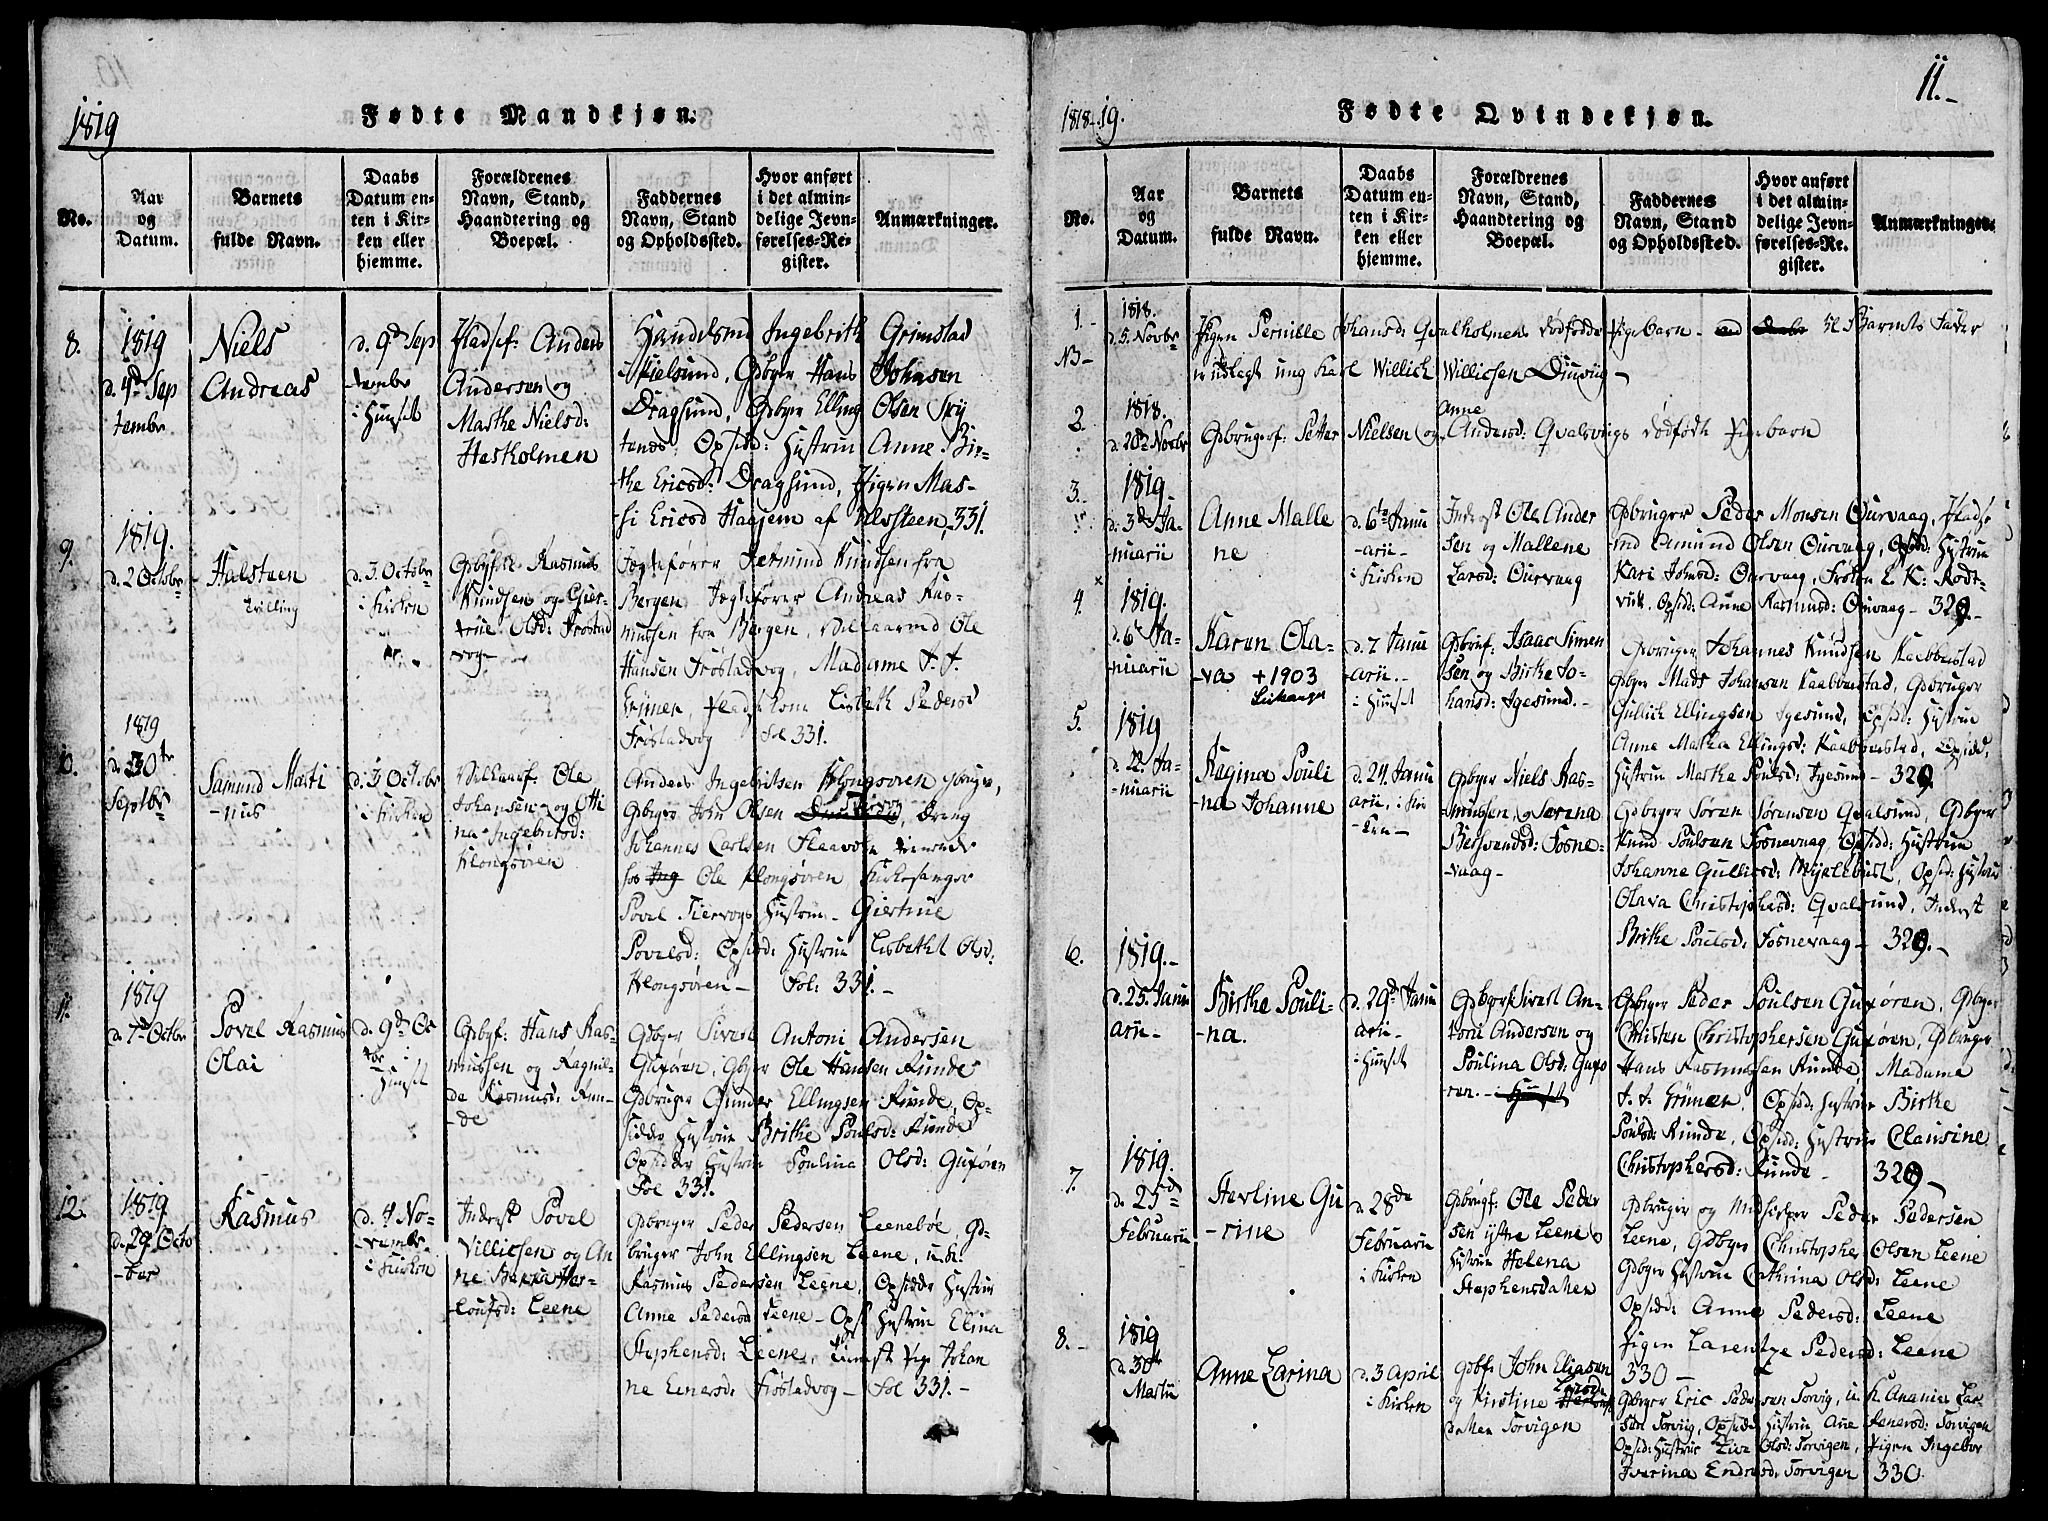 1819
Fødte Mandkjøn.
No.
Aar og Datum.
Barnets fulde Navn.
Daabs Datum enten i Kirken eller hjemme.
Forældrenes Navn, Stand, Haandtering og Boepæl.
Faddernes Navn, Stand og Opholdssted.
Hvor anført i det almindelige Jevnførelses-Register.
Anmærkninger.
8.
1819
d. 4de Sep
tembr
Niels
Andreas
d. 9de Sep
tembr
i Huuset
Anders
Andersen og
Marthe Nielsd:
Handelsmd Ingebrith Grimstad
Gdbger Hans Johnsen
Dragsund, Gdbger Elling Olsen
Opsidd: Hustrue Anne Bir-
the Ericsd: Dragsund, Pigen Mas-
si Ericsd Haajem af Ulvsteen, 331.
9.
1819.
d. 2 Octobr
Halsteen
Tvilling
d. 3. Octobr
i Kirken
Rasmus
Knudsen og Gier-
true Olsd: Frøstad
vog
Jægtefører Jetmund Knudsen fra
Bergen Jægtefører Andreas Ras-
mussen fra Bergen, Ole
Hansen Frøstadvog, Madame J. J.
Grüner, Lisbeth Pedersd
Frøstadvog Fol 331.
10.
1819
d. 30te
Septbr
Samund Marti
-nus
d. 3 Octobr
i Kirken
Ole
Johansen og Otti
na Ingebritsd:
Klongsøren
Anders Ingebritsen Klongsøren
Gdbger John Olsen Dreng
Johannes Carlsen Flaavær tienende
hos Ole Klongsøren, Kirkesanger
Povel Hustrue Giertrue
Povelsd: Opsidd: Hustrue Lisbetht Olsd:
Klongsøren - Fol: 331.-
11.
1819
d. 7 Octbr
Povel Rasmus
Olai
d. 9de Oc
tbr i
Huuset
Gdbgf: Hans Ras-
mussen og Ragnil-
de Rasmusd: Run-
-de
Gdbger Sivert Antoni Andersen
Guxøren, Gbger Ole Hansen Runde
Gdbruger Gunder Ellingsen Runde, Op-
sidder Hustrue Brithe Poulsd: Runde
Opsidder Hustrue Poulina Olsd: Guxøren
Fol 331.
12.
1819
d. 29 Octo
-ber
Rasmus
d. 4 No-
vembr
i Kirken
Inderst Povel
Villicsen og An
ne
Leene
Gdbruger Peder Pedersen Leenebøe, Gd-
bruger John Ellingsen Leene, u.k:
Rasmus Pedersen Leene, Opsidder Hustrue
Anne Pedersd Leene - Ops Hustrue Elina
Stephensd: Leene, Pige Johan
ne Einersd: Frøstadvog - Fol 331.-
1818-19.
Fødte Qvindekjøn.
11.-
No.
Aar og Datum.
Barnets fulde Navn.
Daabs Datum enten i Kirken eller hjemme.
Forældrenes Navn, Stand, Haandtering og Boepæl.
Faddernes Navn, Stand og Opholdssted.
Hvor anført i det almindelige Jevnførelses-Re. gister.
Anmærkninger.
1.-
NB-
1818.
d. 5. Novbr
Pigen Pernille Johansd: Qvalholmens dødfødde Pigebarn - til Barnets Fader
er udlagt ung Karl Willich Willicsen Djuvvig -
2.
1818.
d. 28de Novbr
Gdbrugerf: Petter Nielsen og Anne Andersd: Qvalsvigs dødfødt Pigebarn
3.
1819.
d. 3de Ja-
nuarii
Anne Malle
ne
d. 6te Janu
-arii-
i Kirken
Inderst Ole Ander
sen og Mallene
Larsd: Ourvaag
Gdbruger Peder Monsen Ourvaag, Plads
md Amund Olsen Ourvaag, Opsidd: Hustrue
Kari Johnsd: Ourvaag, Frøken L K: Rodt-
vitk, Opsid: Anne Rasmusd: Ourvaag - 329.-
4.
1819.
d. 6te Ja-
nuarii
Karen Ola-
-va +1903
d. 7 Janu
arii.-
i Huuset
Gdbruf: Isaac Simen
sen og Birthe Jo-
hansd: Igesund.-
Gdbruger Johannes Knudsen Kaabbestad
Gdbger Mads Johansen Kaabbestad, Gdbruger
Gullick Ellingsen Igesund, Opsid: Hustrue
Anne Martha Ellingsd: Kaabbestad, Opsidd:
Hustrue Martha Poulsd: Igesund - 329
5.
1819
d. 22. Ja-
-nuarii
Ragina Pouli
-na Johanne
d. 24. Janu
arii, i Kir
-ken-
Gdbger Niels Ras-
mussen, og Serena
Fosne-
-vaag-
Gdbger Søren Sørensen Qvalsund, Gdbger
Knud Poulsen Fosnevaag Opsidd: Hustrue
Johanne Gullicsd: Myrlebust, Opsid: Hustrue
Olava Christophersd: Qvalsund, Inderst
Brithe Poulsd: Fosnevaag - 329.-
6.
1819.-
d. 25. Janu
arii-
Birthe Pouli-
-na.
d. 29de Janu
arii-
i Huuset
Gdbger Sivert An-
toni Andersen og
Poulina Olsd: Guxø
ren.-
Gdbger Peder Poulsen Guxøren, Gdbger
Christen Christophersen Guxøren, Gdbruger
Hans Rasmussen Runde, Madame
J. J. Grüner, Opsidd: Hustrue Birthe
Poulsd: Runde, Opsid: Hustrue Clausine
Christophersd: Runde - 329-
7.
1819.
d. 25de
Februarii
Herline Gu
-rine
d. 28de
Februarii
i Kirken
Gdbrugf: Ole Peder
sen ystre Leene
Hustrue Helena
Stephensdatter
Gdbruger og Medhielper Peder Pedersen
Leene, Gdbger Christopher Olsen Leene
Gdbger Hustrue Cathrina Olsd: Leene
Opsidd: Anne Pedersd: Leene
Pigen Larentze Pedersd: Leene
330 -
8.-
1819
d. 30te
Martii
Anne Larina
d. 3 April
i Kirken
Gdbf: John Eliasen
og Kirstine Larsd
datter Torvigen
Gdbger Eric Pedersen Torvig, u. K. Ananias Lar
sen Torvig, Opsidd: Hustrue Ane Torvigen
Opsid: Hustrue Live Olsd: Torvigen, Pigen Ingebor
Iverina Endresd: Torvigen 330.